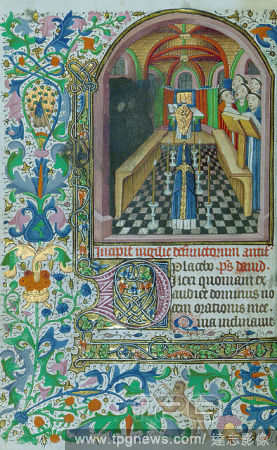 Incipit vigilie defunctorum antif
Placebo. ps david
Dilexi quoniam ex
audiet dominus vo
cem orationis mee
Quia inclinavit
www.tpgnews.com/達志影像